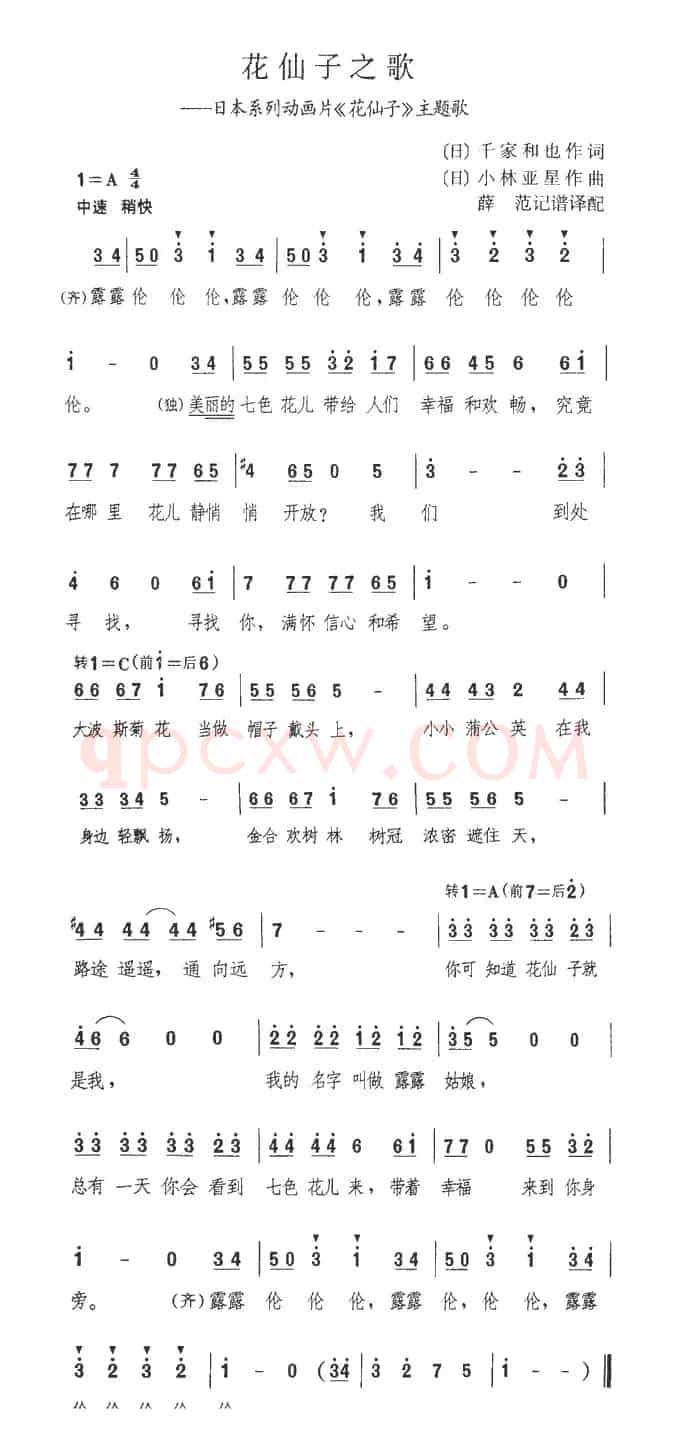 花仙子之歌
——日本系列动画片《花仙子》主题歌
(日) 千家和也作词
1=A 4/4 (日) 小林亚星作曲
中速 稍快 薛 范记谱译配
3 4 | 5 0 3̇ 1̇ 3 4 | 5 0 3̇ 1̇ 3̇ 4̇ | 3̇ 2̇ 3̇ 2̇ |
(齐)露露 伦 伦 伦,露露 伦 伦 伦,露露 伦 伦 伦 伦
1̇ - 0 3 4 | 5 5 5 5 3̇ 2̇ 1̇ 7 | 6 6 4 5 6 6 1̇ |
伦。 (独)美丽的 七色 花儿 带给 人们 幸福 和欢 畅, 究竟
7 7 7 7 7 6 5 | #4 6 5 0 5 | 3̇ - - 2̇ 3̇ |
在哪 里 花儿 静悄 悄 开放? 我 们 到处
4̇ 6 0 6 1̇ | 7 7 7 7 7 6 5 | 1̇ - - 0 |
寻 找, 寻找 你, 满怀 信心 和希 望。
转1=C(前1̇=后6)
6 6 6 7 1̇ 7 6 | 5 5 5 6 5 - | 4 4 4 3 2 4 4 |
大波 斯菊 花 当做 帽子 戴头 上, 小小 蒲公 英 在我
qpcxw.COM
3 3 3 4 5 - | 6 6 6 7 1̇ 7 6 | 5 5 5 6 5 - |
身边 轻飘 扬, 金合 欢树 林 树冠 浓密 遮住 天,
转1=A(前7=后2̇)
#4 4 4 4 4 4 #5 6 | 7 - - - | 3̇ 3̇ 3̇ 3̇ 3̇ 3̇ 2̇ 3̇ |
路途 遥遥, 通 向远 方, 你可 知道 花仙 子就
4̇ 6 6 0 0 | 2̇ 2̇ 2̇ 2̇ 1̇ 2̇ 1̇ 2̇ | 3̇ 5 5 0 0 |
是我, 我的 名字 叫做 露露 姑娘,
3̇ 3̇ 3̇ 3̇ 3̇ 3̇ 2̇ 3̇ | 4̇ 4̇ 4̇ 4̇ 6 6 1̇ | 7 7 0 5 5 3̇ 2̇ |
总有 一天 你会 看到 七色 花儿 来, 带着 幸福 来到 你身
1̇ - 0 3 4 | 5 0 3̇ 1̇ 3 4 | 5 0 3̇ 1̇ 3̇ 4̇ |
旁。 (齐)露露 伦 伦 伦, 露露 伦, 伦 伦, 露露
3̇ 2̇ 3̇ 2̇ | 1̇ - 0 (3̇ 4̇ | 3̇ 2̇ 7 5 | 1̇ - - ) ‖